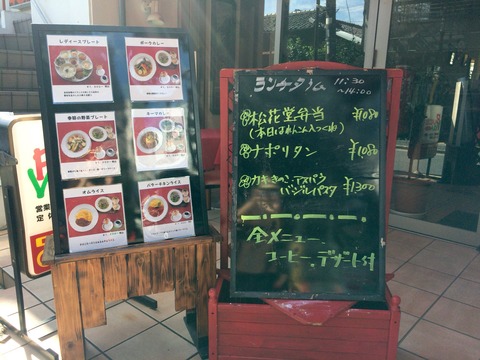 レディースプレート
ポークカレー
季節の野菜プレート
キーマカレー
オムライス
バターチキンライス
営業
定休
ランチタイム 11:30
~14:00
松花堂弁当 ¥1080
(本日はれんこん入つくね)
ナポリタン ¥1080
カキ・きのこ・アスパラ
バジルパスタ ¥1300
全メニュー
コーヒー、デザート付